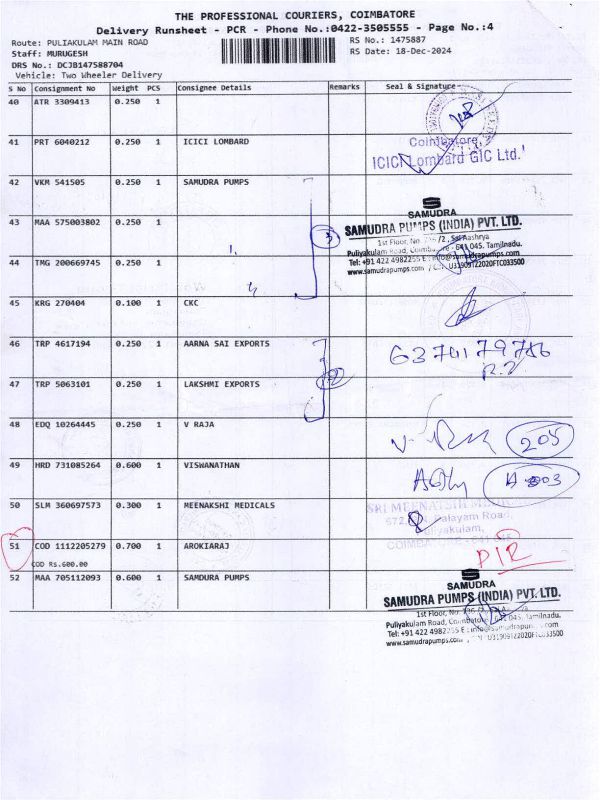 THE PROFESSIONAL COURIERS, COIMBATORE
Delivery Runsheet - PCR - Phone No.:0422-3505555 - Page No.:4
Route: PULIAKULAM MAIN ROAD
RS No.: 1475887
Staff: MURUGESH
RS Date: 18-Dec-2024
DRS No.: DCJB147588704
Vehicle: Two Wheeler Delivery
S No Consignment No Weight PCS Consignee Details Remarks Seal & Signature
40 ATR 3309413 0.250 1
41 PRT 6040212 0.250 1 ICICI LOMBARD
Coimbatore
ICICI Lombard GIC Ltd.
42 VKM 541505 0.250 1 SAMUDRA PUMPS
SAMUDRA
SAMUDRA PUMPS (INDIA) PVT. LTD.
43 MAA 575003802 0.250 1
3
1st Floor, No. /2, Sai Aashrya
Puliyakulam Road, Coimbatore - 641 045. Tamilnadu.
44 TMG 200669745 0.250 1
Tel: +91 422 4982255 E : info@samudrapumps.com
www.samudrapumps.com / U31909TZ2020FTC033500
45 KRG 270404 0.100 1 CKC
46 TRP 4617194 0.250 1 AARNA SAI EXPORTS
47 TRP 5063101 0.250 1 LAKSHMI EXPORTS
2
48 EDQ 10264445 0.250 1 V RAJA
205
49 HRD 731085264 0.600 1 VISWANATHAN
50 SLM 360697573 0.300 1 MEENAKSHI MEDICALS
SRI MEENATSHI
Palayam Road,
Puliyakulam,
COIMBA
51 COD 1112205279 0.700 1 AROKIARAJ
COD Rs.600.00
52 MAA 705112093 0.600 1 SAMDURA PUMPS
SAMUDRA
SAMUDRA PUMPS (INDIA) PVT. LTD.
1st Floor, No.
Puliyakulam Road, Coimbatore 641 045. Tamilnadu.
Tel: +91 422 4982255 E : info@samudrapumps.com
www.samudrapumps.com U31909TZ2020FTC033500